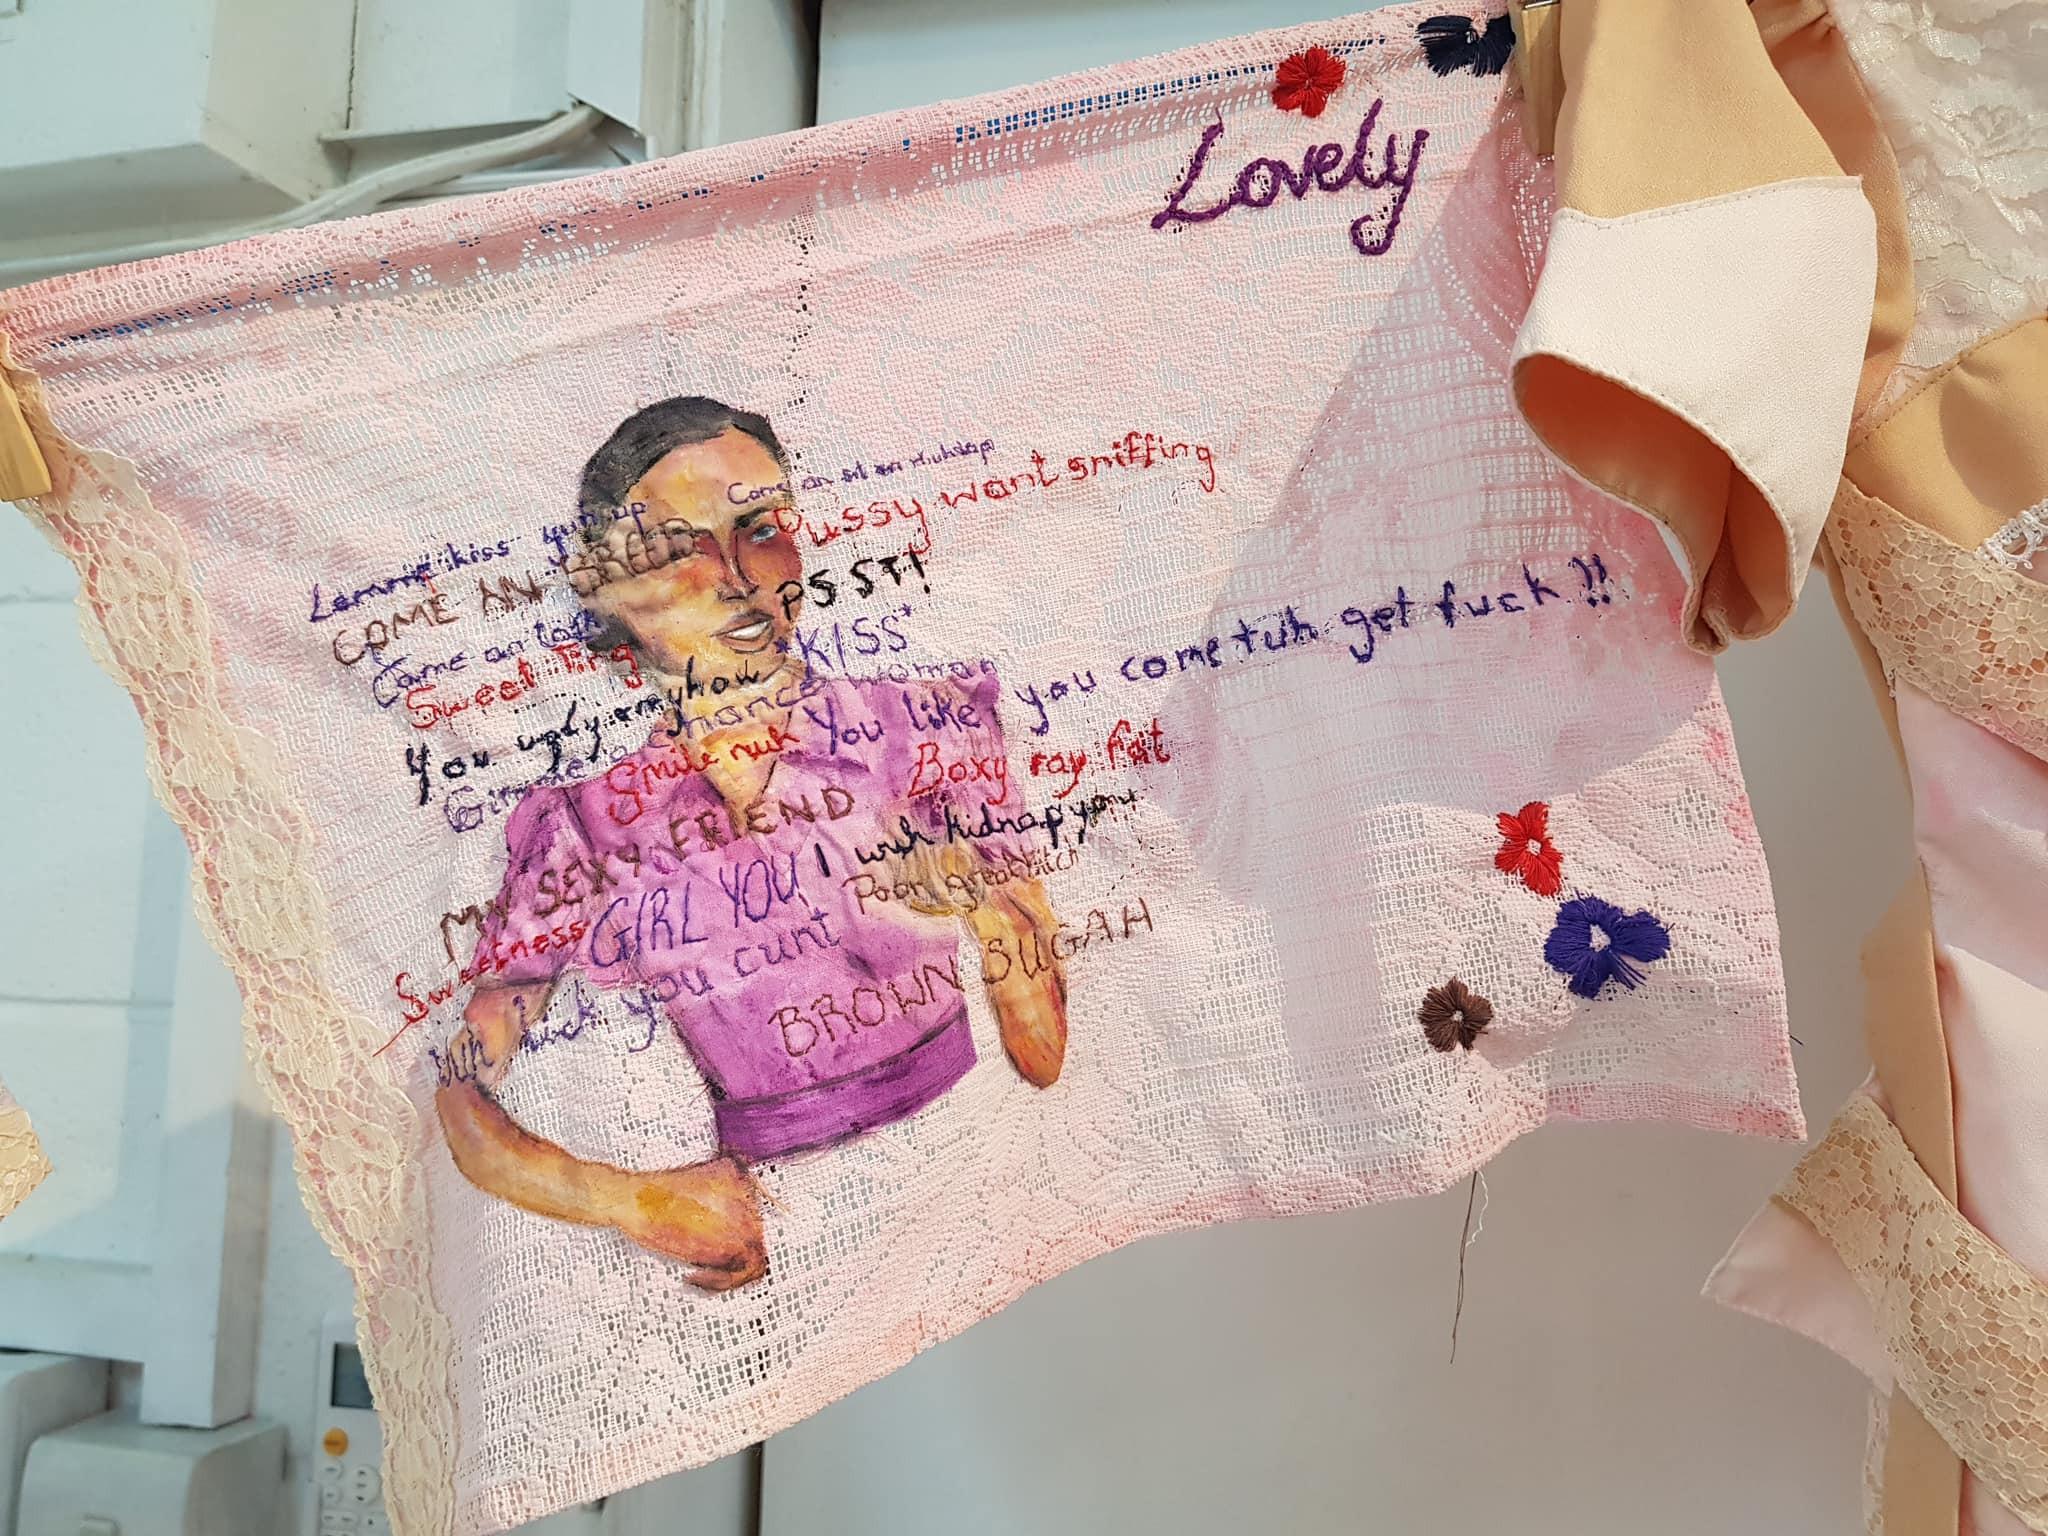 Lovely
Come an sit an muh lap
Pussy want sniffing
Lemme kiss yuh up
COME AN BREED
PSST!
Come an talk
*KISS*
Sweet Ting
You ugly anyhow
Gimme a chance woman
You like you come tuh get fuck!!
Smile nuh
Boxy ray fat
MY SEXY FRIEND
I wuh kidnap you
GIRL YOU
Poor great bitch
Sweetness
you cunt
BROWN SUGAH